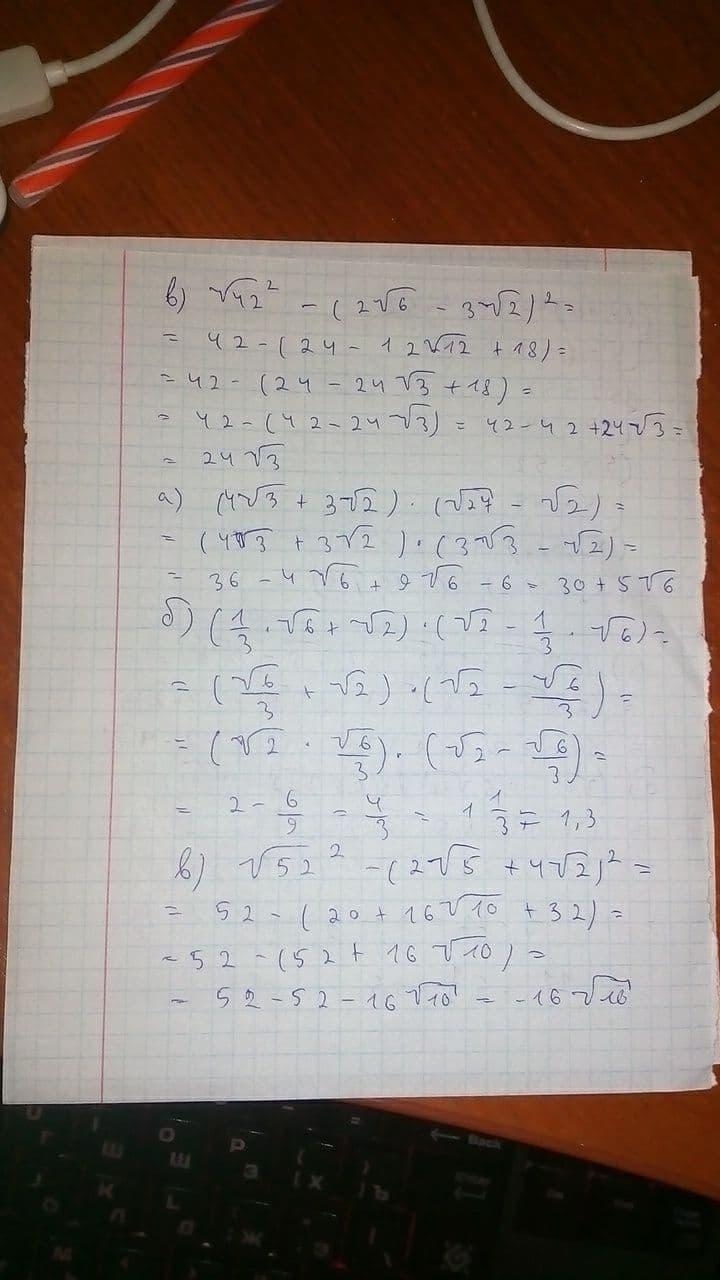 в) √42² - (2√6 - 3√2)² =
= 42-(24 - 12√12 + 18) =
= 42 - (24 - 24√3 + 18) =
= 42-(42-24√3) = 42-42+24√3 =
= 24√3
а) (4√3 + 3√2) · (√27 - √2) =
= (4√3 + 3√2) · (3√3 - √2) =
= 36 - 4√6 + 9√6 - 6 = 30 + 5√6
б) (1/3 · √6 + √2) · (√2 - 1/3 · √6) =
= (√6/3 + √2) · (√2 - √6/3) =
= (√2 · √6/3) · (√2 - √6/3) =
= 2 - 6/9 = 4/3 = 1 1/3 = 1,3
в) √52² - (2√5 + 4√2)² =
= 52 - (20 + 16√10 + 32) =
= 52 - (52 + 16√10) =
= 52 - 52 - 16√10 = -16√10
Back